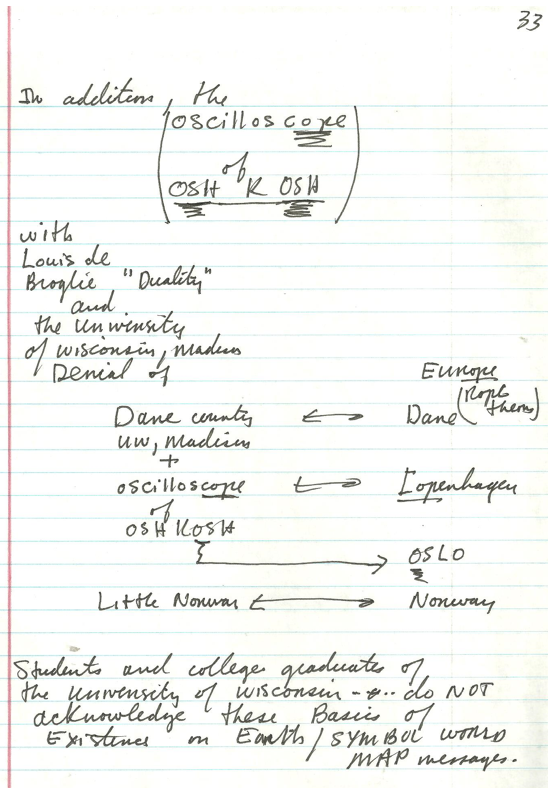 33
In addition, the
oscilloscope
of
OSHKOSH
with
Louis de
Broglie "Duality"
and
the University
of Wisconsin, Madison
Denial of
Europe
Dane county ↔ Dane (Rope
them)
UW, Madison
+
oscilloscope ↔ Copenhagen
of
OSHKOSH
→ OSLO
Little Norway ↔ Norway
Students and college graduates of
the University of Wisconsin -..- do NOT
acknowledge these Basis of
Existence on Earth / SYMBOL WORLD
MAP messages.